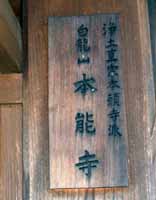 浄土真宗本願寺派
白龍山 本能寺